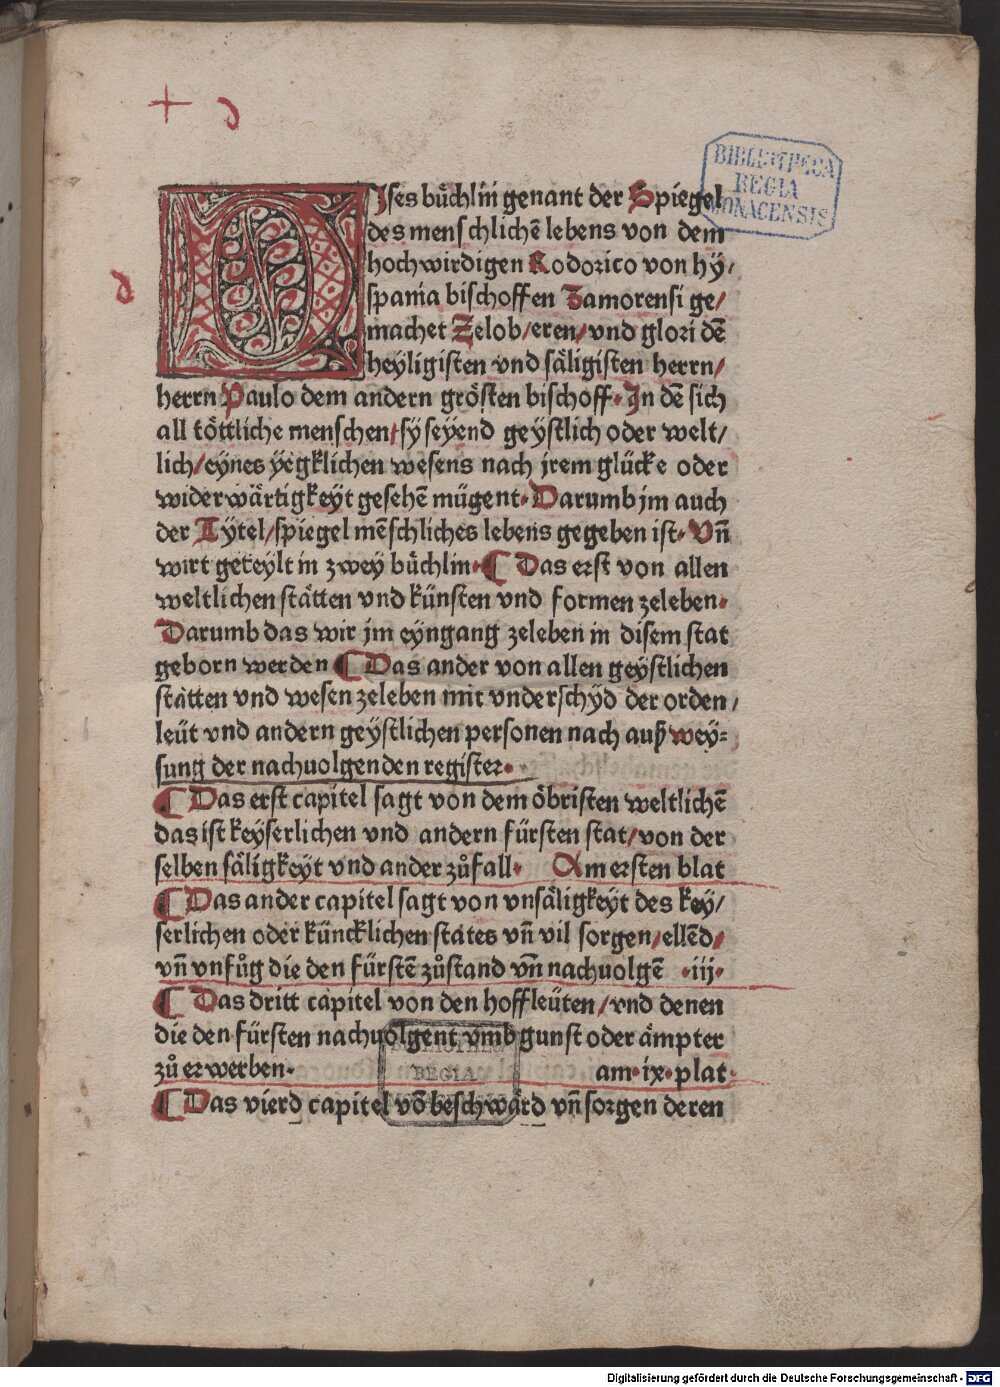 BIBLIOTHECA
REGIA
MONACENSIS
DIses bůchlin genant der Spiegel
des menschlichē lebens von dem
hochwirdigen Rodorico von hÿ/
spania bischoffen Zamorensi ge/
machet Zelob/eren/vnd glori dē
heyligisten vnd säligisten herrn/
herrn Paulo dem andern grösten bischoff. In dē sich
all töttliche menschen/sÿ seyend geÿstlich oder welt/
lich/eynes ÿegklichen wesens nach jrem glücke oder
widerwärtigkeyt gesehē mügent. Darumb jm auch
der Tÿtel/spiegel mēschliches lebens gegeben ist. Vn̄
wirt geteylt in zwey bůchlin. ¶ Das erst von allen
weltlichen stätten vnd künsten vnd formen zeleben.
Darumb das wir jm eÿngang zeleben in disem stat
geborn werden ¶ Das ander von allen geÿstlichen
stätten vnd wesen zeleben mit vnderschÿd der orden/
leüt vnd andern geÿstlichen personen nach außwey⸗
sung der nachuolgenden register.
¶ Das erst capitel sagt von dem öbristen weltlichē
das ist keyserlichen vnd andern fürsten stat/von der
selben säligkeyt vnd ander zůfall. Am ersten blat
¶ Das ander capitel sagt von vnsäligkeyt des key/
serlichen oder küncklichen states vn̄ vil sorgen/ellēd/
vn̄ vnfůg die den fürstē zůstand vn̄ nachuolgē .iij.
¶ Das dritt capitel von den hoffleüten/vnd denen
die den fürsten nachuolgent vmb gunst oder ämpter
zů erwerben. am.ix.plat.
¶ Das vierd capitel vō beschwärd vn̄ sorgen deren
REGIA
Digitalisierung gefördert durch die Deutsche Forschungsgemeinschaft - DFG